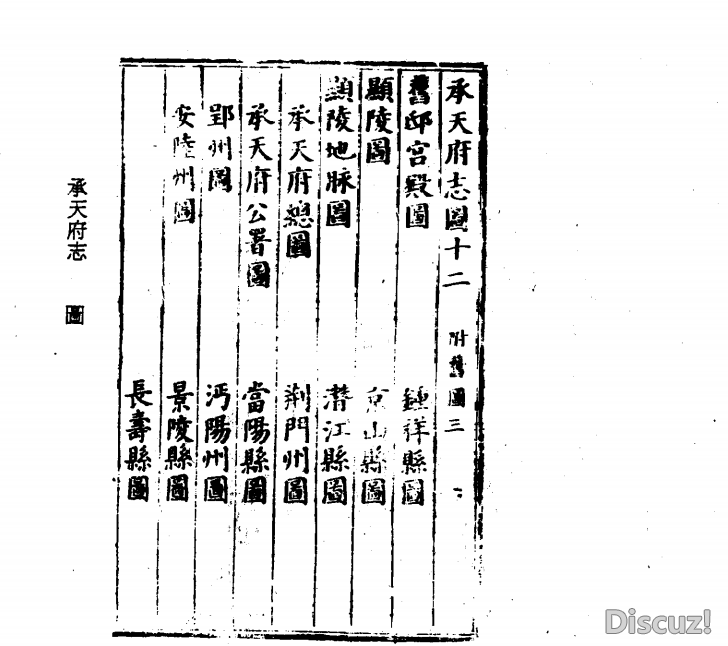 承天府志圖十二 附舊圖三
舊邸宮殿圖 鍾祥縣圖
顯陵圖 京山縣圖
顯陵地脉圖 潛江縣圖
承天府總圖 荆門州圖
承天府公署圖 當陽縣圖
郢州圖 沔陽州圖
安陸州圖 景陵縣圖
長壽縣圖
承天府志 圖
Discuz!